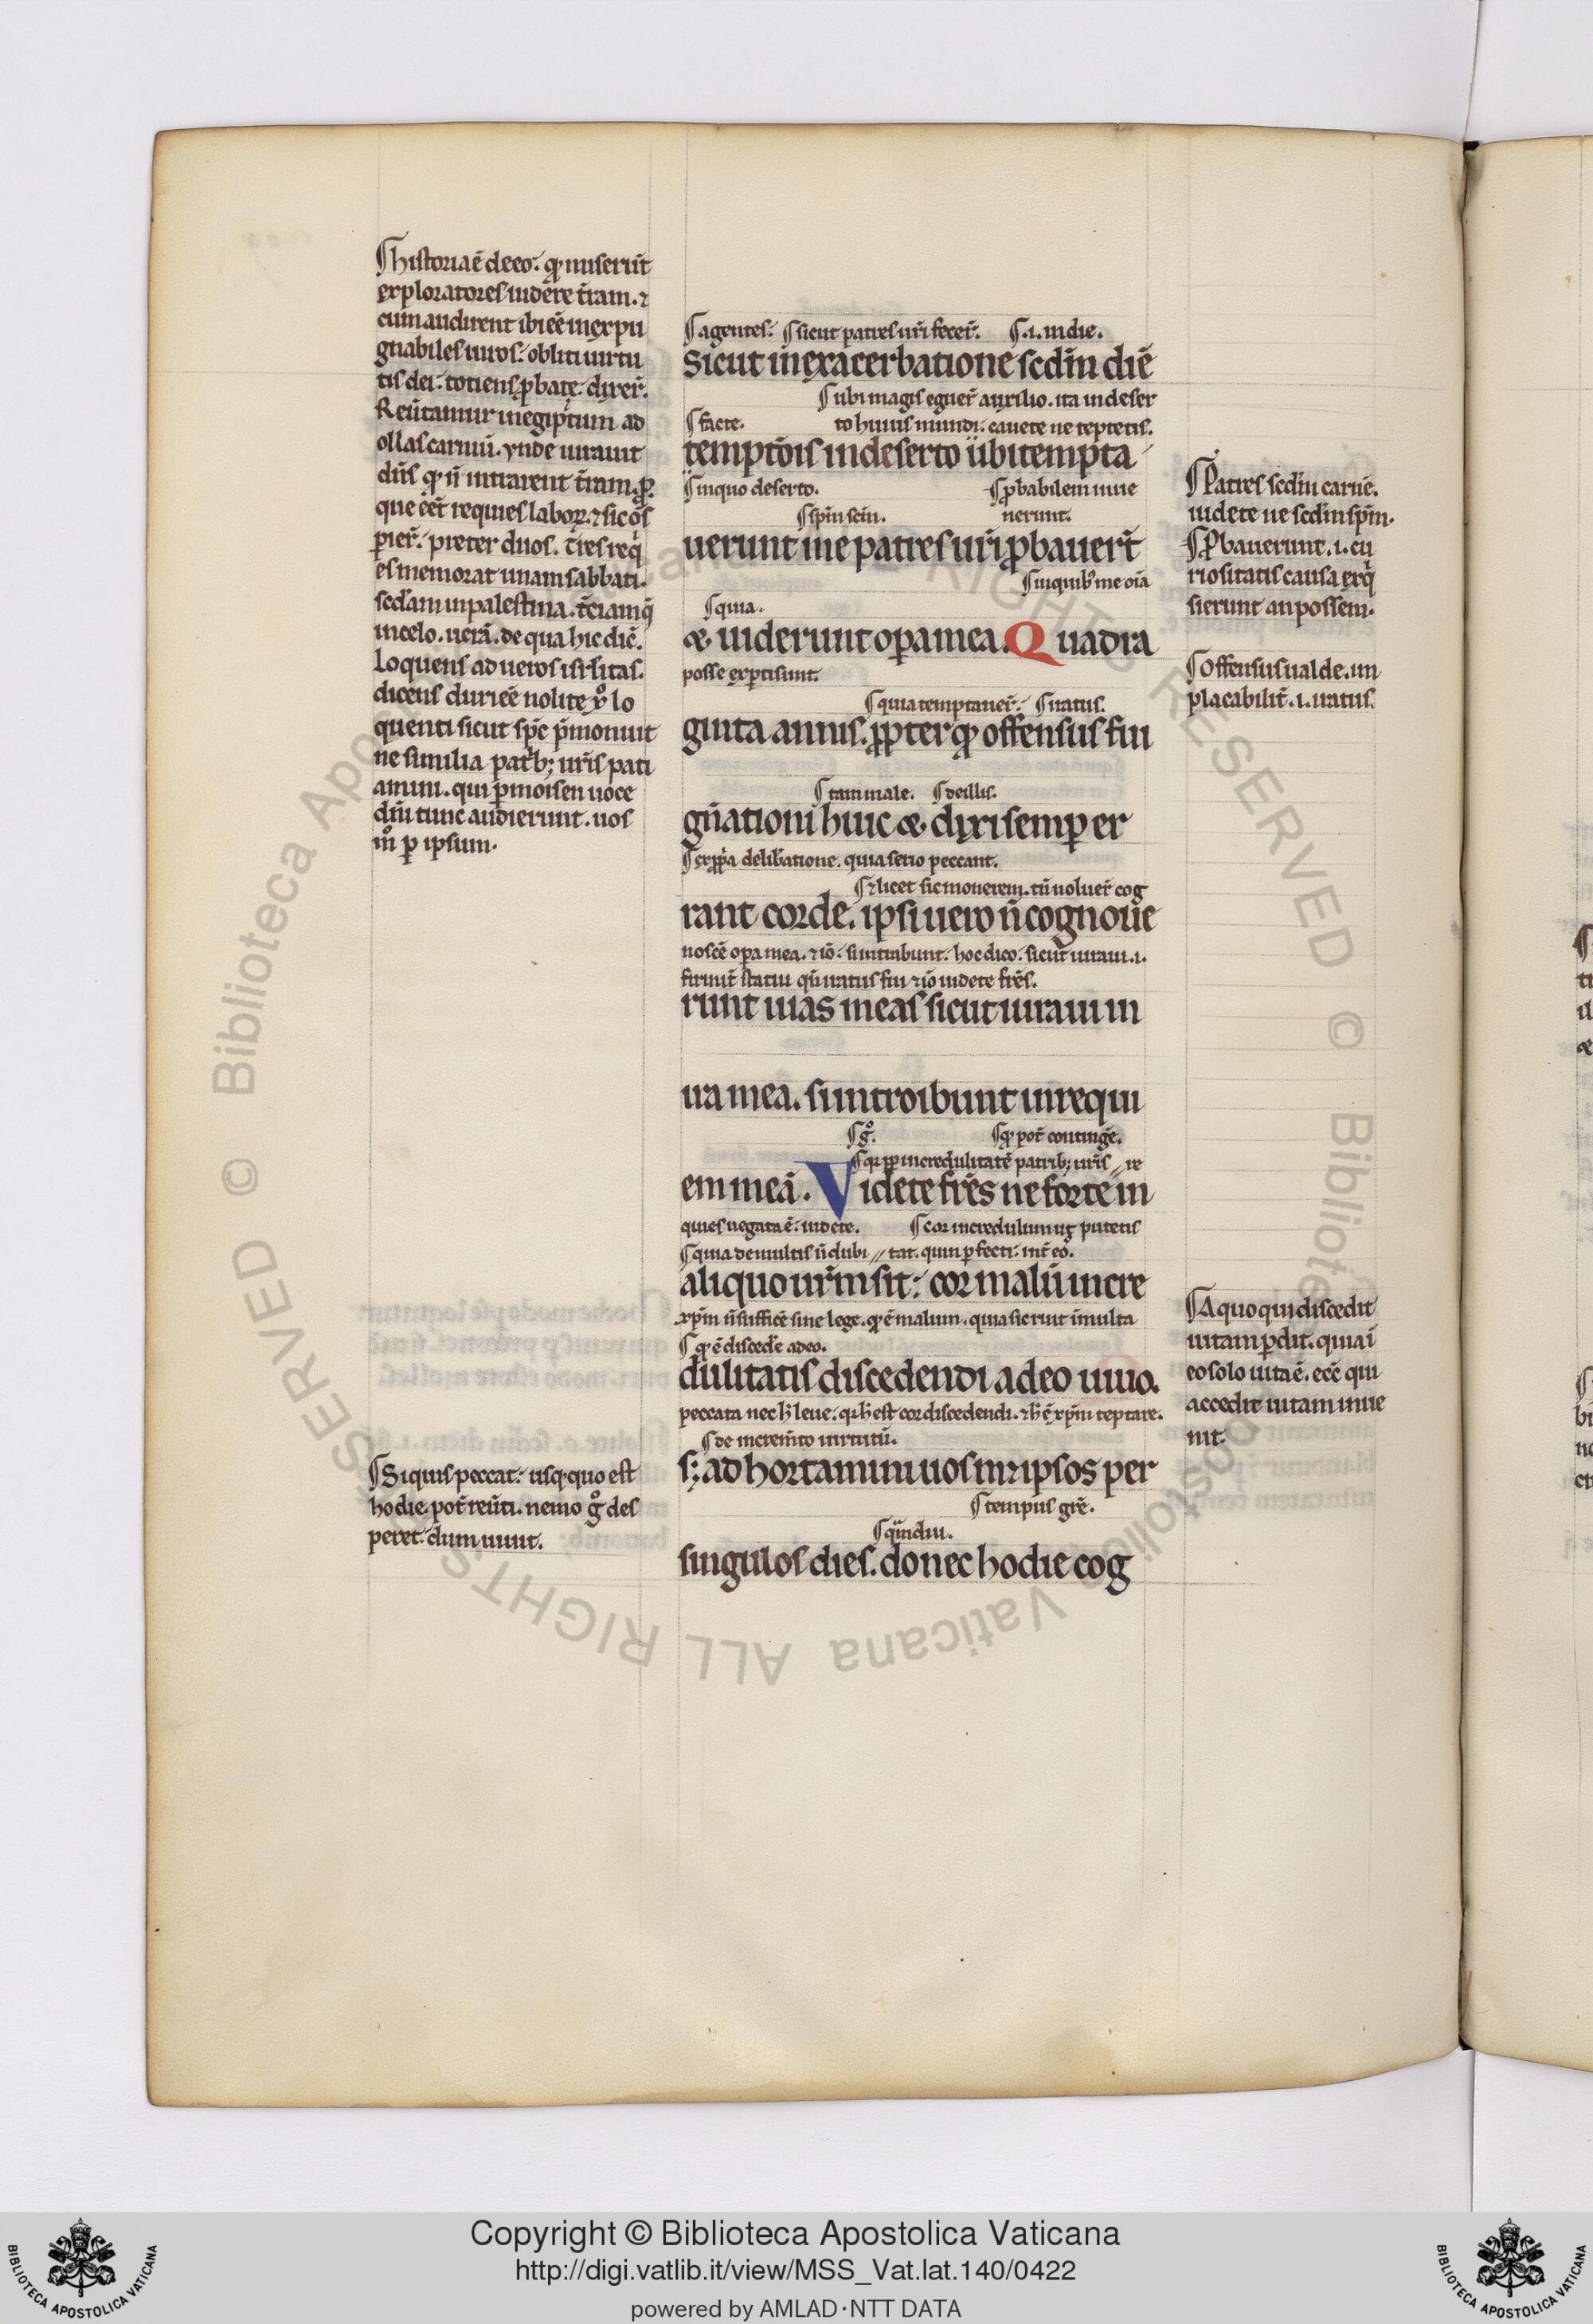 historia ē de eo. qđ miserūt
exploratores uidere t̄ram. ⁊
cum audirent ibi eē inexpu
gnabiles uiros: obliti uirtu
tis dei: totiens ꝓbatę. dixer̄.
Reūtamur in egiptum ad
ollas carniū. vnde iurauit
dn̄s qđ n̄ intrarent t̄ram. ꝓ
que eēt requies laboꝝ. ⁊ sic oēs
perier̄. preter duos. Tres reqͥ
es memorat unam sabbati.
scđam in palestina. t̄ciam q̄
in celo. uerā. de qua hic dic̄.
loquens ad ueros isrl̄itas.
dicens duri eē nolite xͦp̄o lo
quenti sicut sp̄c p̄monuit
ne similia patribꝫ ur̄is pati
amini. qui p̄ moisen uoce
dn̄i tunc audierunt. uos
m̊ ꝑ ipsum.
Si quis peccat: usqꝫ quo est
hodie. pot̄ reūti. nemo gͦ des
peret: dum uiuit.
agentes: sicut patres ur̄i fecer̄. .i. in die.
Sicut in exacerbatione scđm diē
ubi magis eguer̄ auxilio. ita in deser
facte. to huius mundi. cauete ne teptetis.
temptōis in deserto ubi tempta
in quo deserto. ꝓbabilem inue
spm̄ scm̄. nerunt.
uerunt me patres ur̄i ꝓbauer̄t
in quibꝰ me oīa
quia.
& uiderunt oꝑa mea. Quadra
posse exꝑti sunt.
quia temptauer̄: iratus.
ginta annis. ꝓpter qđ offensus fui
tam male. de illis.
gn̄ationi huic & dixi semꝑ er
ex ꝓpa delibatione. quia serio peccant.
⁊ licet sic monerem. tn̄ noluer̄ cog
rant corde. ipsi uero n̄ cognoue
noscē oꝑa mea. ⁊ iō: si intrabunt. hoc dico: sicut iuraui .i.
firmit̄ statui qn̄ iratus fui ⁊ iō uidete fr̄es.
runt uias meas sicut iuraui in
ira mea. si introibunt in requi
gͦ. qđ pot̄ contingē.
qꝛ ꝓp incredulitatē patribꝫ ur̄is re
em meā. Videte fr̄es ne forte in
quies negata ē. uidete. cor incredulum ut putetis
quia de multis n̄ dubi tat. quin ꝑfecti: int̄ eoˢ.
aliquo ur̄m sit: cor malū incre
xp̄m n̄ sufficē sine lege. qđ ē malum. quia sic ruit in multa
qđ ē discedē a deo.
dulitatis discedendi a deo uiuo.
peccata nec h̄ leue. qꝛ h̄ est cor discedendi. ⁊ h̄ ē xp̄m teptare.
de incremt̄o uirtutū.
sꝫ adhortamini uosmetipsos per
tempus gr̄e.
qͣmdiu.
singulos dies. donec hodie cog
Patres scđm carnē.
uidete ne scđm spm̄.
ꝓbauerunt .i. cu
riositatis causa exqͥ
sierunt an possem.
Offensus ualde. im
placabilit̄ .i. iratus.
A quo qui discedit
uitam ꝑdit. quia ī
eo solo uita ē. ecc̄ qui
accedit uitam inue
nit.
Copyright © Biblioteca Apostolica Vaticana
http://digi.vatlib.it/view/MSS_Vat.lat.140/0422
powered by AMLAD·NTT DATA